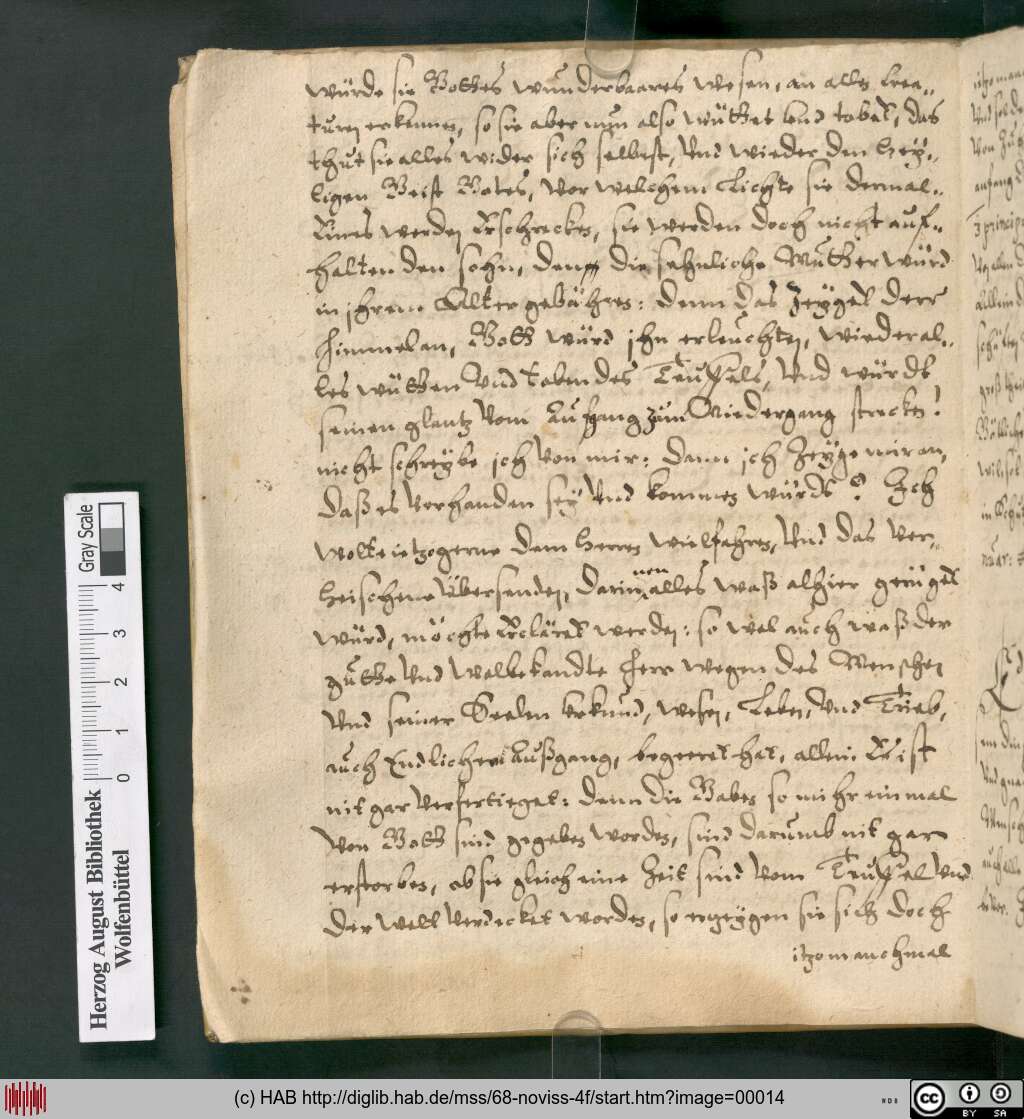 würde sie Gottes wunderbaares wesen, an allen Crea„
turen erkennen, so sie aber nun also wüttet vnd tobet, das
thut sie alles wider sich selbest, vnd wieder den Hey„
ligen Geist Gotes, vor welchem Liechte sie dermal„
Eines werden Erschrecken, sie werden doch nicht auf„
halten den sohn, denn die sehnliche Mutter würd
in jhrem Alter gebähren: denn das Zeyget derr
Himmel an, Gott würd jhn erleuchten, wieder al„
les wütten vnd toben des Teuffels, vnd würdt
seinen glantz vom Aufgang zum Niedergang strecken!
nicht schreybe jch von mir: dann jch Zeyge nur an,
daß es verhanden sey vnd kommen würdt? Jch
wolte ietzo gerne dem Herren wielfahren, vnd das ver„
heischene Übersenden, darin
nen
alles waß alhier gerüget
würd, möchte Erkläret werden: so wol auch waß der
gutte vnd wolbekandte Herr wegen des Menschen
vnd seiner Seelen Urkund, wesen, Leben, vnd Trieb,
auch Endlichen Außgang, begeeret hat, allein Er ist
nit gar verfertieget: denn die Gaben so mihr einmal
von Gott sind gegeben worden, sind darumb nit gar
erstorben, ob sie gleich eine Zeit sind vom Teuffel vnd
der welt verdecket worden, so erzeygen sie sich doch
itzo manchmal
Herzog August Bibliothek
Wolfenbüttel
0 1 2 3 4
Gray Scale
(c) HAB http://diglib.hab.de/mss/68-noviss-4f/start.htm?image=00014
cc BY SA